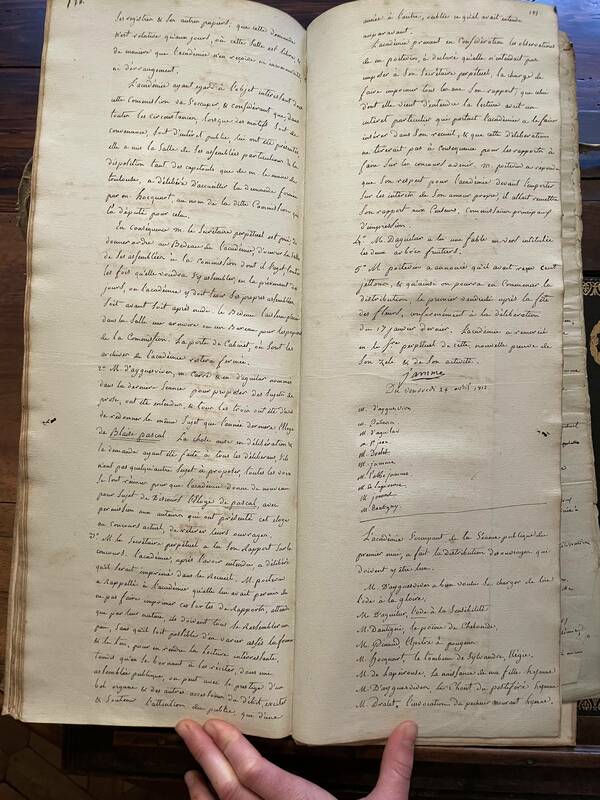 190.
ses registres & ses autres papiers, que cette demande
n'est relative qu'aux jours, où cette Salle est libre, &
de maniere que l'académie n'en reçoive ni incommodité
ni dérangement.
L'académie ayant égard à l'objet intéressant dont
cette Commission va s'occuper, & considérant que, dans
toutes les circonstances, lorsque des motifs de
convenance, soit d'intérêt public, lui ont été présentés
elle a mis la Salle de ses assemblées particulieres à la
disposition tant des capitouls que de m. le maire de
toulouse, a délibéré d'accueillir la demande formée
par m. hocquart, au nom de la ditte Commission, qui
l'a député pour cela.
En conséquence m. le Secrétaire perpétuel est prié de
donner ordre au Bedeau de l'académie, d'ouvrir la Salle
de ses assemblées à la Commission dont il s'agit toutes
les fois qu'elle voudra s'y assembler, en la prévenant des
jours, où l'académie y doit tenir ses propres assemblées
soit avant soit après midi. le Bedeau laissera placer
dans la Salle une armoire ou un Bureau pour les papiers
de la Commission. La porte du Cabinet, où sont les
archives de l'académie restera fermée.
2° M. d'ayguesvives, m. Carré & m. d'aguilar nommés
dans la derniere Séance pour proposer des Sujets de
prose, ont été entendus, & tous les trois ont été d'avis
de redonner le même Sujet que l'année derniere l'Eloge
de Blaise pascal. La chose mise en délibération &
la demande ayant été faite à tous les délibérans, s'ils
n'ont pas quelqu'autre Sujet à proposer, toutes les voix
se sont réunies pour que l'académie donne de nouveau
pour Sujet de Discours l'Eloge de pascal, avec
permission aux auteurs qui ont présenté cet éloge
au Concours actuel, de retirer leurs ouvrages.
3° M. le Secrétaire perpétuel a lu son Rapport sur le
concours. l'académie, après l'avoir entendu, a délibéré
qu'il serait imprimé dans le Recueil. M. poitevin
a Rappellé à l'académie qu'elle lui avait permis de
ne pas faire imprimer ces sortes de Rapports, attendu
que par leur nature ils doivent tous se Ressembler un
peu, sans qu'il soit possible d'en varier assés la forme
& le ton, pour en rendre la lecture intéressante,
tandis qu'en se bornant à les réciter, dans une
assemblée publique, on peut avec le prestige d'un
bel organe & des autres accessoires du débit, exciter
& Soutenir l'attention du public, qui d'une
191
année à l'autre, oublie ce qu'il avait entendu
auparavant.
L'académie prenant en Considération les observations
de m. poitevin, a déclaré qu'elle n'entendait pas
imposer à son Secrétaire perpétuel, la charge de
faire imprimer tous les ans son rapport, que celui
dont elle vient d'entendre la lecture avait un
intérêt particulier qui portait l'académie à le faire
insérer dans son recueil, & que cette délibération
ne tirerait pas à conséquence pour les rapports à
faire sur les concours à venir. M. poitevin a répondu
que son respect pour l'académie devant l'emporter
sur les intérêts de son amour propre, il allait remettre
son rapport aux Censeurs, Commissaires principaux
d'impression.
4° M. D'aguilar a lu une fable en vers intitulée
les deux arbres fruitiers.
5° M. poitevin a annoncé qu'il avait reçu cent
jettons, & qu'ainsi on pourra en Commencer la
distribution, le premier vendredi après la fête
des fleurs, conformément à la délibération
du 17 janvier dernier. L'académie a remercié
m. le Sre perpétuel de cette nouvelle preuve de
son zele & de son activité.
jamme
Du Vendredi 24 avril 1812
M. d'ayguesvives
M. d'aguilar
M. St jean
M. Dralet
M. jamme
M. l'abbé jamme
M. de lapeirouse
M. jouvent
M. Dantigny.
L'académie s'occupant de la Séance publique du
premier may, a fait la distribution des ouvrages qui
doivent y être lus.
M. D'ayguesvives a bien voulu se charger de lire
l'ode à la gloire.
M. D'aguilar, l'ode à la Sensibilité
M. Dantigny, le poëme de
M. l'Epitre à
M. Hocquart, le tombeau de Sylvandre, Elégie.
M. de Lapeirouse, la naissance de une fille hymne
M. D'ayguesvives, le Chant du hymne
M. Dralet, l'invocation du pecheur mourant hymne.